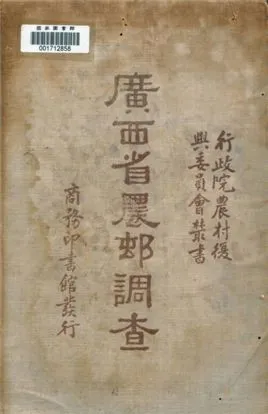 國家圖書館
001712856
行政院農村復
興委員會叢書
廣西省農邨調查
商務印書館發行